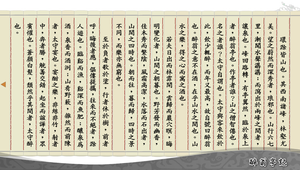 環滁皆山也。其西南諸峰，林壑尤
美。望之蔚然而深秀者，琅邪也。山行六七
里，漸聞水聲潺潺，而瀉出於兩峰之間者，
讓泉也。峰回路轉，有亭翼然，臨於泉上
者，醉翁亭也。作亭者誰？山之僧智僊也。
名之者誰？太守自謂也。太守與客來飲於
此，飲少輒醉，而年又最高，故自號曰醉翁
也。醉翁之意不在酒，在乎山水之間也。
山水之樂，得之心而寓之酒也。
若夫日出而林霏開，雲歸而巖穴暝，晦
明變化者，山間之朝暮也。野芳發而幽香，
佳木秀而繁陰，風霜高潔，水落而石出者，
山間之四時也。朝而往，暮而歸，四時之景
不同，而樂亦無窮也。
至於負者歌於塗，行者休於樹，前者
呼，後者應，傴僂提攜，往來而不絕者，滁
人遊也。臨谿而漁，谿深而魚肥；釀泉為
酒，泉香而酒洌；山肴野蔌，雜然而前陳
者，太守宴也。宴酣之樂，非絲非竹，射者
中，弈者勝，觥籌交錯，起坐而諠譁者，眾
賓懽也。蒼顏白髮，頹然乎其間者，太守醉
也。
醉翁亭記